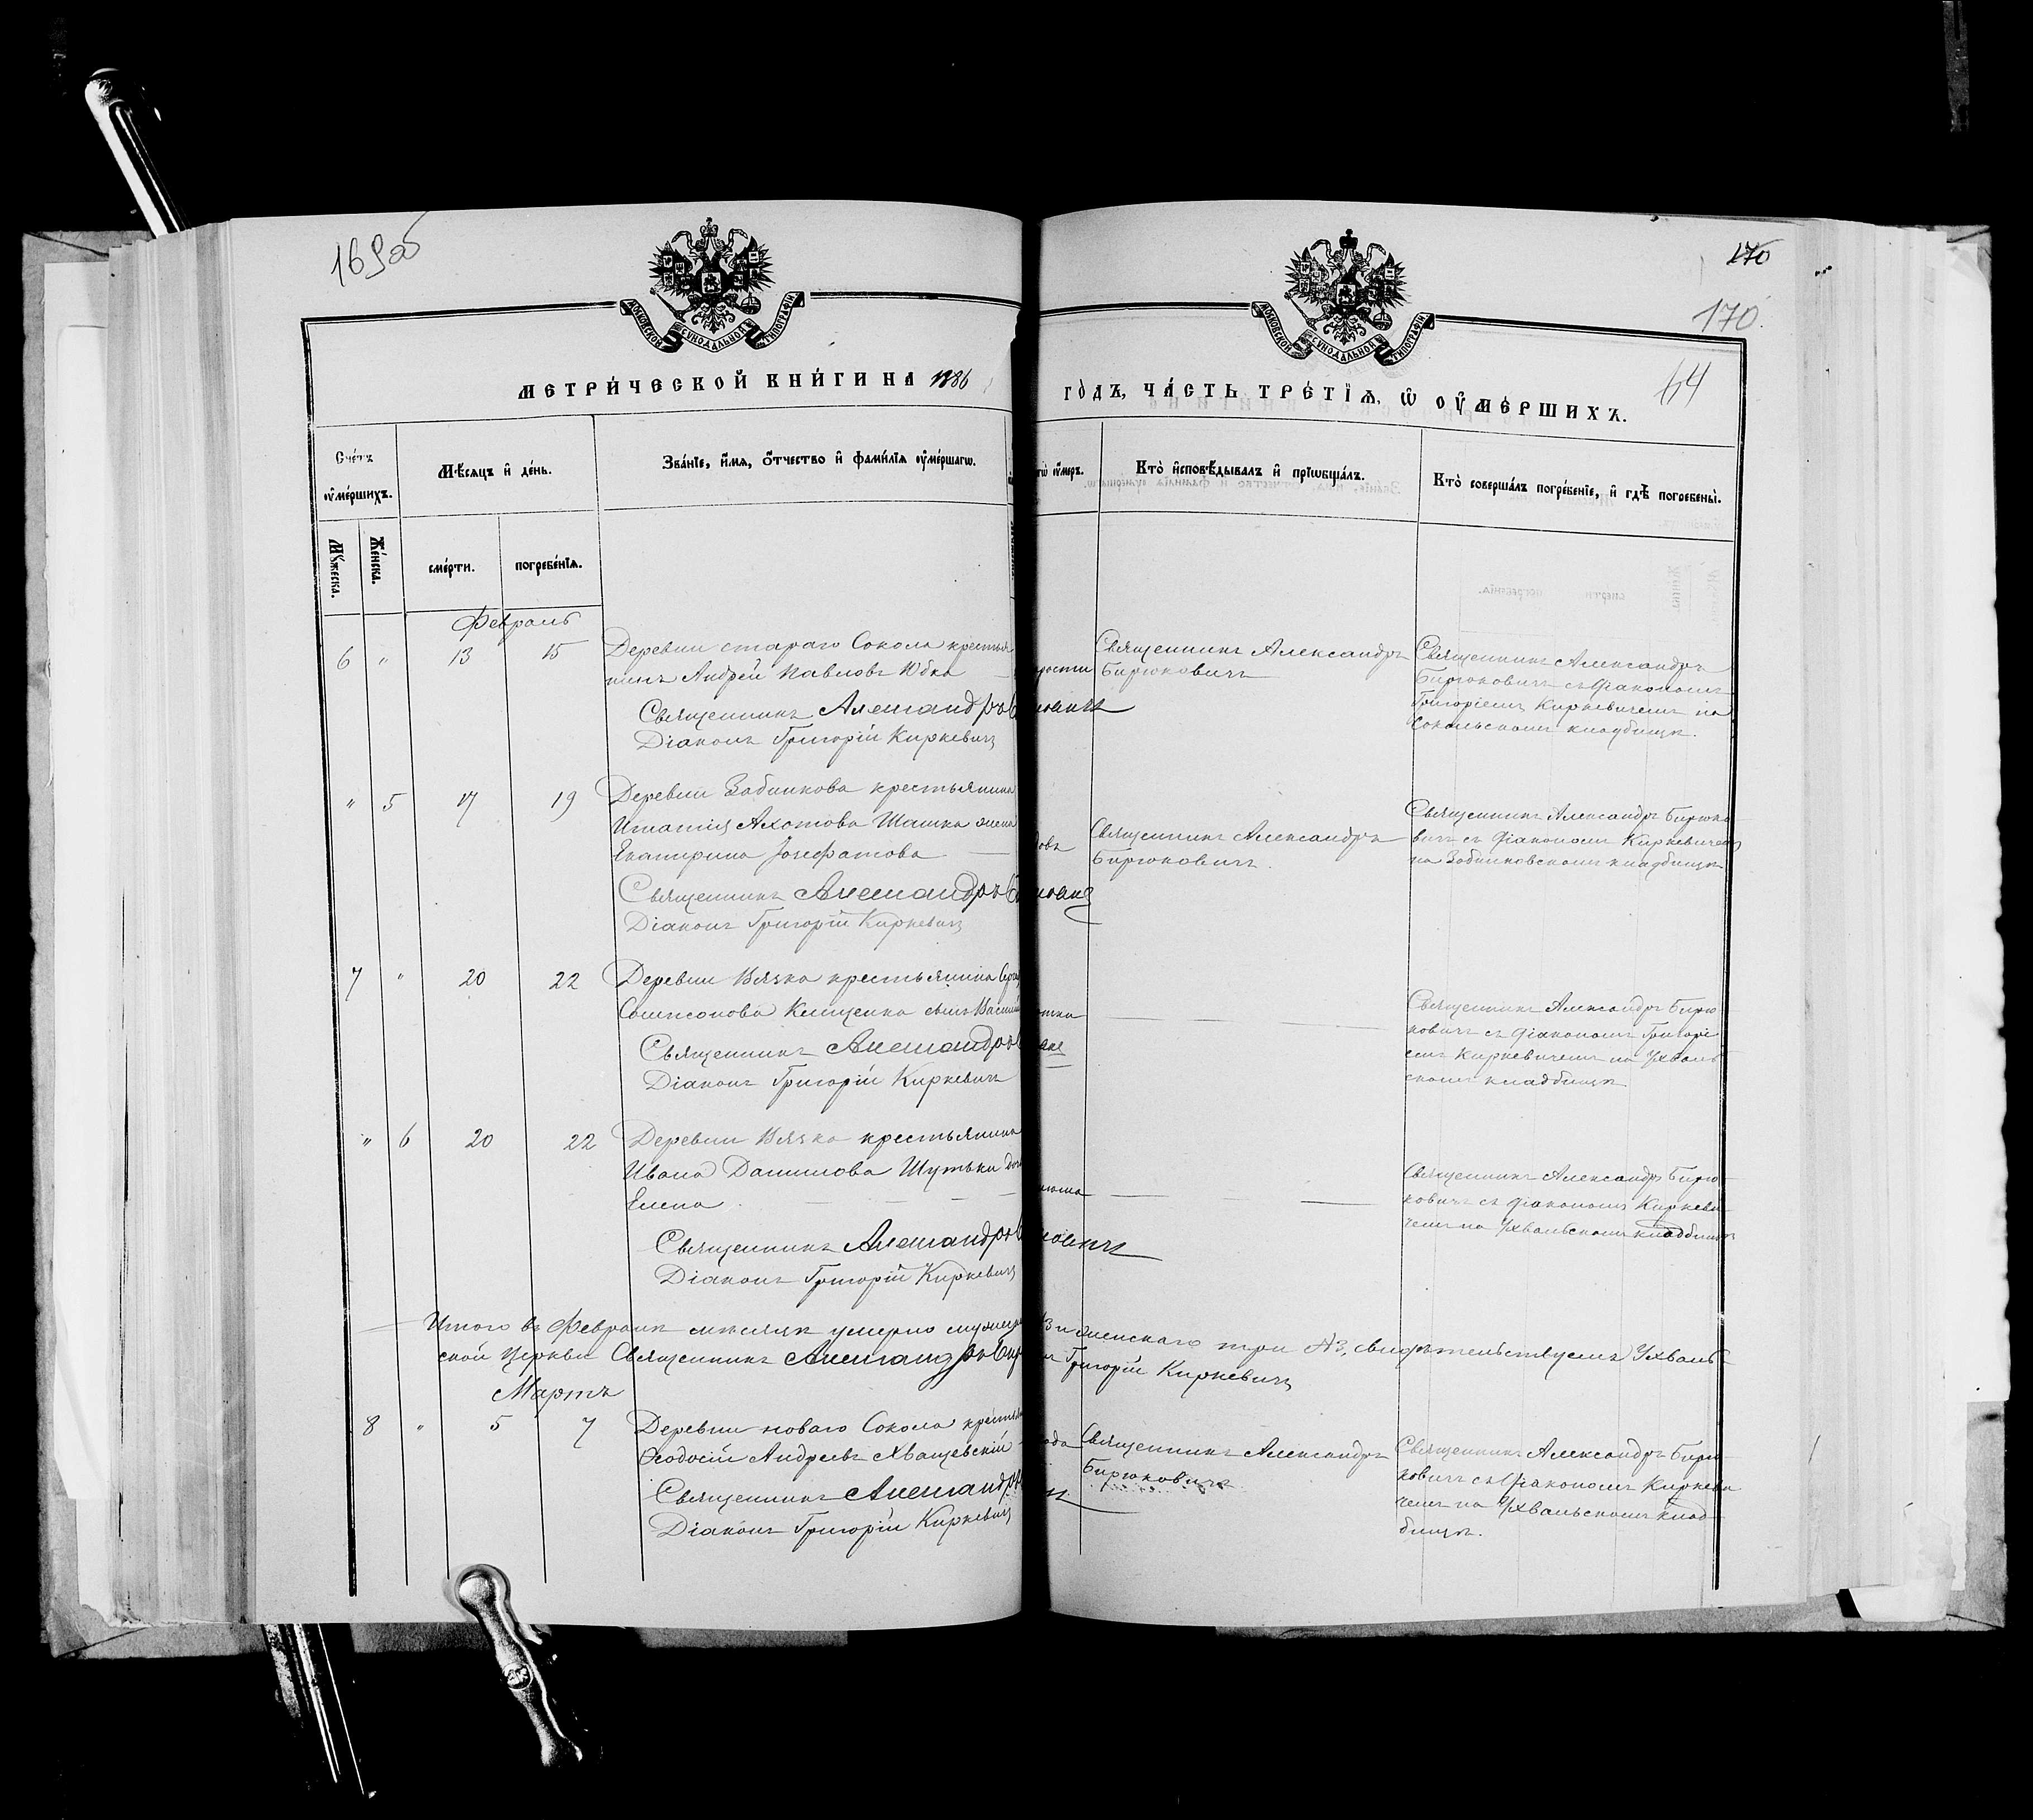 169об
170
170
64
МОСКОВСКОЙ СѴНОДАЛЬНОЙ ТИПОГРАФІИ
МОСКОВСКОЙ СѴНОДАЛЬНОЙ ТИПОГРАФІИ
МЕТРИ́ЧЕСКОЙ КНИ́ГИ НА 1886
ГО́ДЪ, ЧА́СТЬ ТРЕ́ТІѦ, Ѡ ОУ҆МЕ́РШИХЪ.
Сче́тъ оу҆ме́ршихъ.
Мѣ́сяцъ и҆ де́нь.
Зва́нїе, и҆́мѧ, ѻ҆́тчество и҆ фами́лїѧ оу҆ме́ршагѡ.
оу҆́меръ.
Кто̀ и҆сповѣ́дывалъ и҆ прїѡбща́лъ.
Кто̀ соверша́лъ погребе́нїе, и҆ гдѣ̀ погребены̀.
Мꙋ́жеска.
Же́нска.
сме́рти.
погребе́нїѧ.
Февраль
6 " 13 15
Деревни стараго Сокола крестья
нинъ Андрей Павловъ Юбка
Священникъ Александръ
Діаконъ Григорій Киркевичъ
Священникъ Александръ
Бирюковичъ
Священникъ Александръ
Бирюковичъ съ діакономъ
Григоріемъ Киркевичемъ на
Сокольскомъ кладбищѣ.
" 5 17 19
Деревни Забинкова крестьянина
Игнатія Ахотова Шашка жена
Екатерина Іозефатова
Священникъ Александръ
Діаконъ Григорій Киркевичъ
Священникъ Александръ
Бирюковичъ.
Священникъ Александръ Бирюко-
вичъ съ діакономъ Киркевичемъ
на Забинковскомъ кладбищѣ
7 " 20 22
Деревни Вязка крестьянина
Сампсонова Клищенка сынъ
Священникъ Александръ
Діаконъ Григорій Киркевичъ
Священникъ Александръ Бирю
ковичъ съ діакономъ Григорі
емъ Киркевичемъ на Ухваль
скомъ кладбищѣ
" 6 20 22
Деревни Вязка крестьянина
Ивана Данилова Шутьки дочь
Елена
Священникъ Александръ
Діаконъ Григорій Киркевичъ
Священникъ Александръ Бирю
ковичъ съ діакономъ Киркеви
чемъ на Ухвальскомъ кладбищѣ
Итого въ Февралѣ мѣсяцѣ умерло женскаго три №3, свидѣтельствуемъ Ухваль
ской церкви Священникъ Александръ Григорій Киркевичъ
Мартъ
8 " 5 7
Деревни новаго Сокола крестья
Ѳеодосій Андреевъ Хващевскій
Священникъ Александръ
Діаконъ Григорій Киркевичъ
Священникъ Александръ
Бирюковичъ
Священникъ Александръ Бирю
ковичъ съ діакономъ Киркеви
чемъ на Ухвальскомъ клад-
бищѣ.